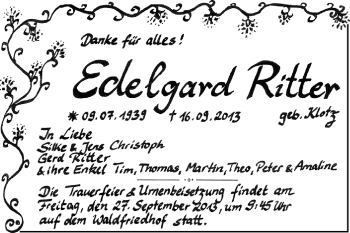 Danke für alles!
Edelgard Ritter
* 09.07.1939 † 16.09.2013 geb. Klotz
In Liebe
Silke & Jens Christoph
Gerd Ritter
& ihre Enkel Tim, Thomas, Martin, Theo, Peter & Amaline
Die Trauerfeier & Urnenbeisetzung findet am
Freitag, den 27. September 2013, um 9:45 Uhr
auf dem Waldfriedhof statt.